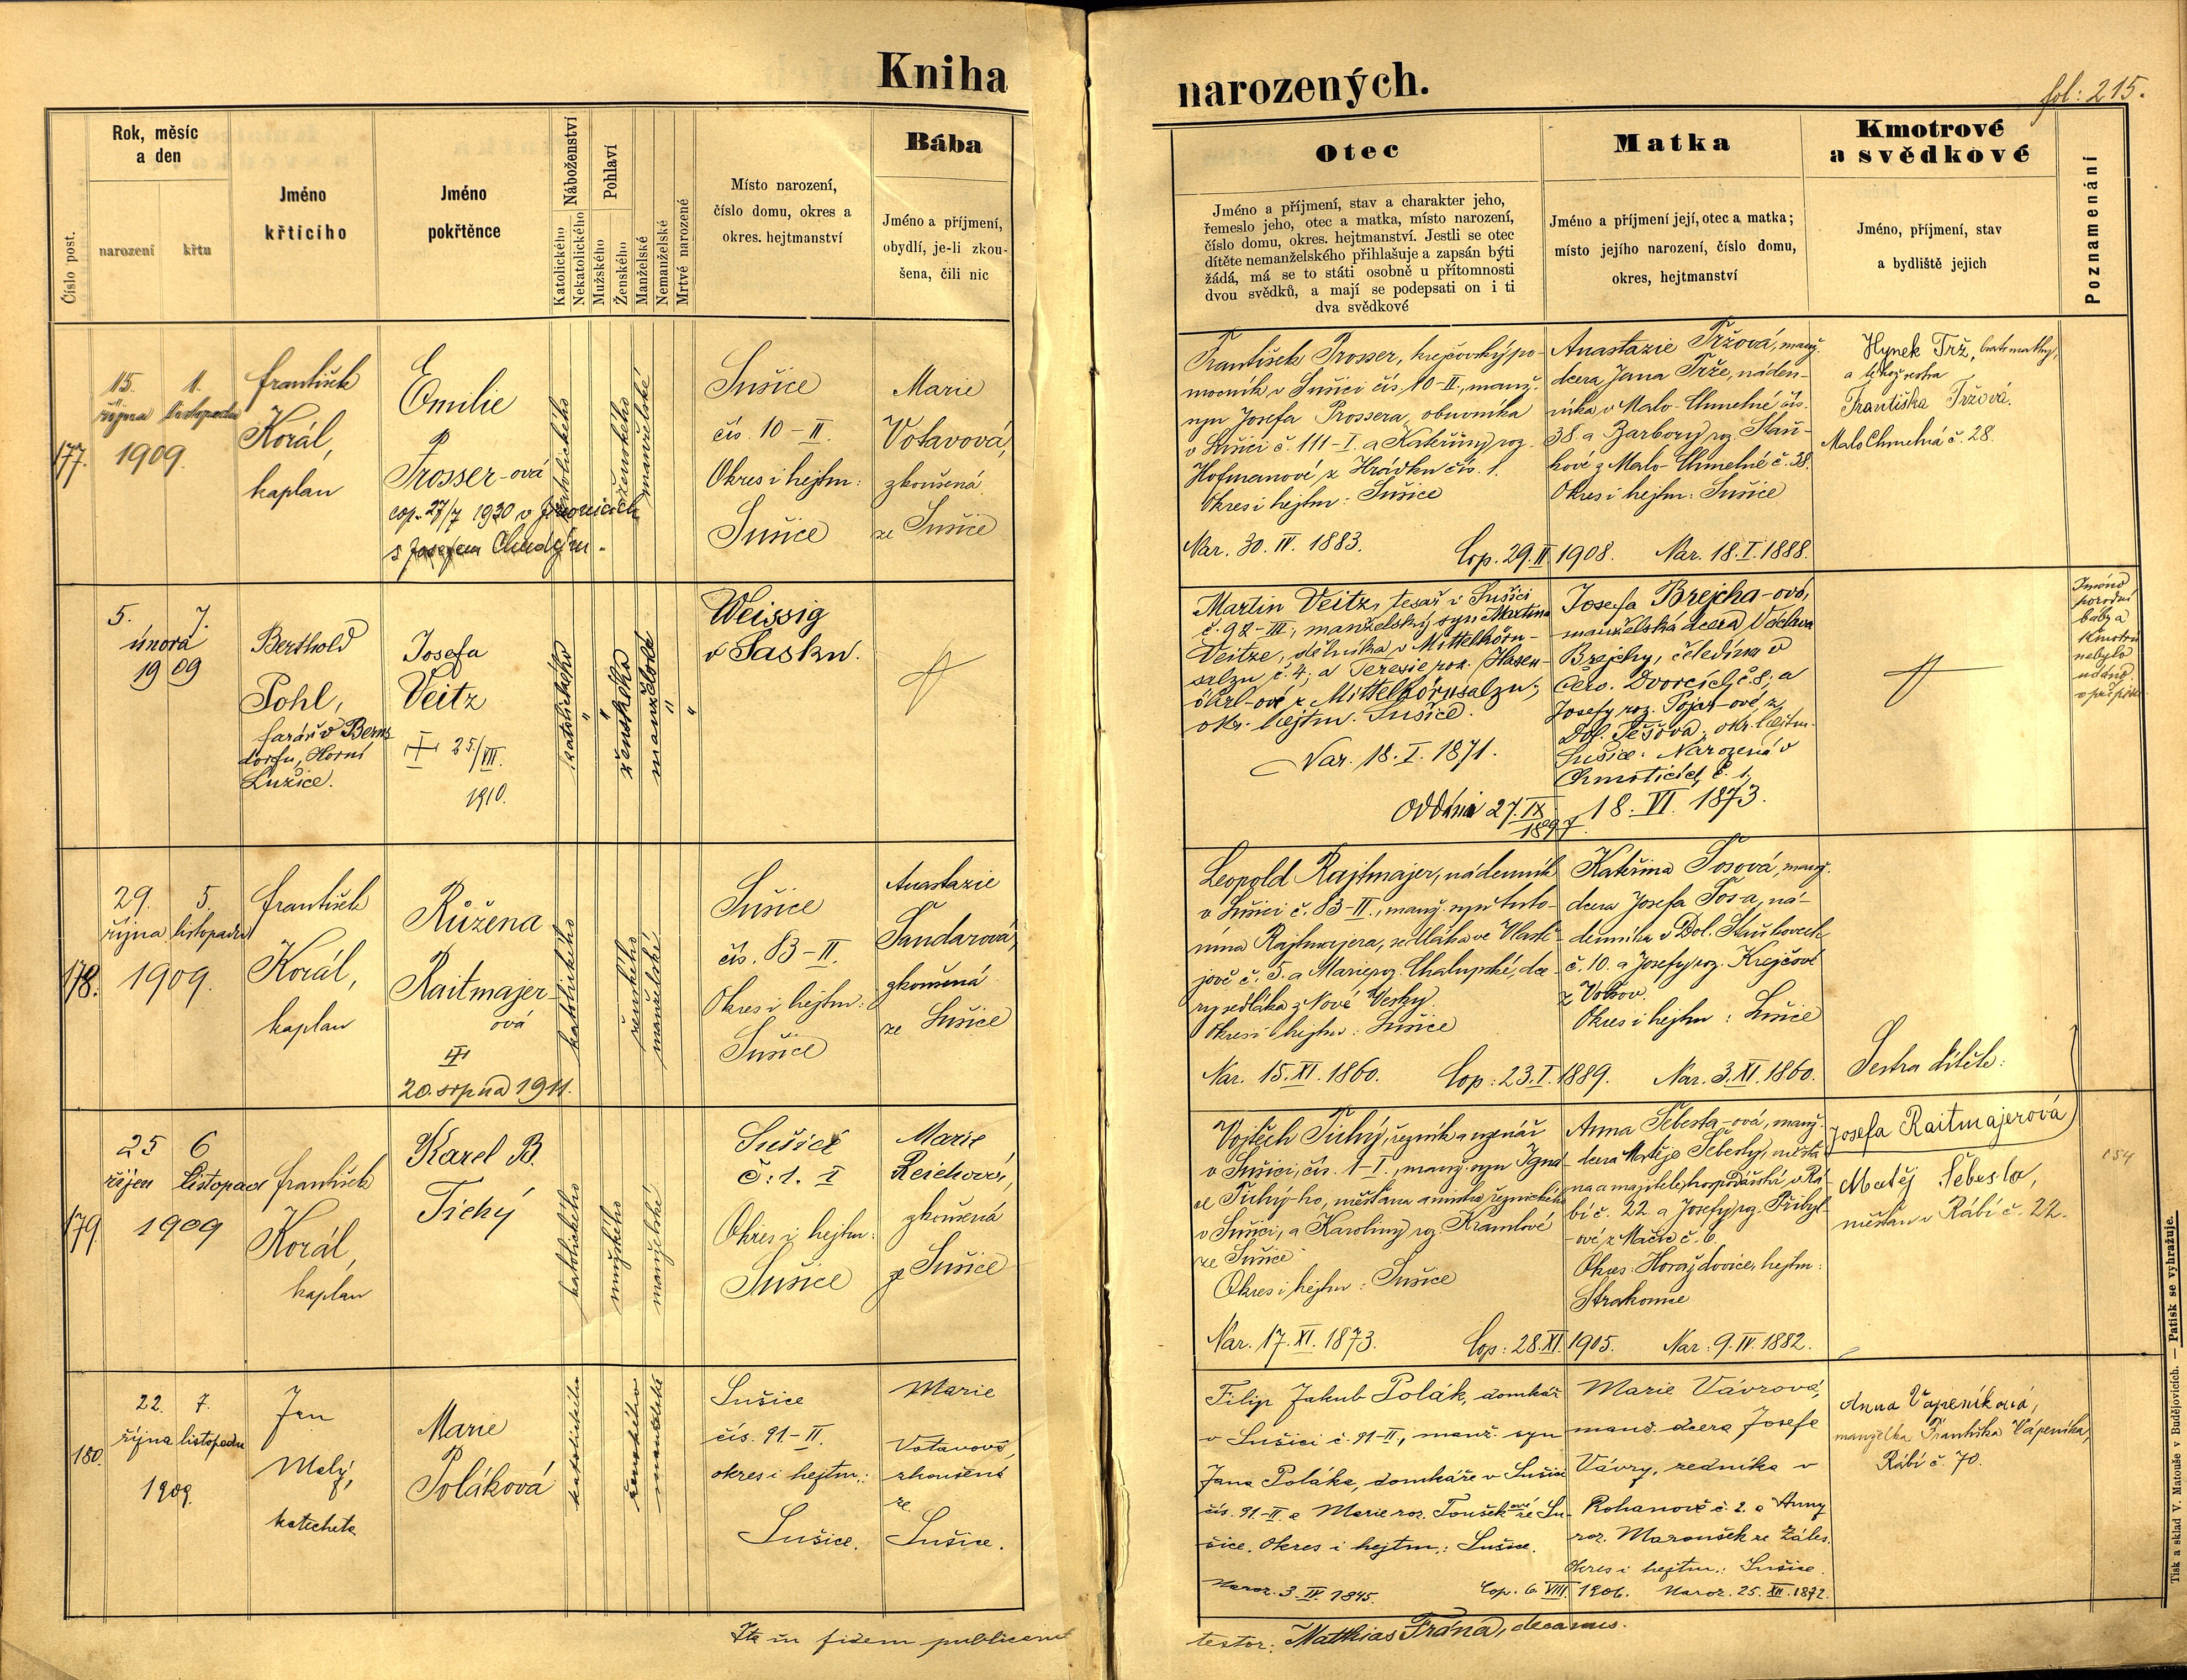 Kniha
narozených.
fol: 215.
Číslo post.
Rok, měsíc
a den
narození
křtu
Jméno
křtícího
Jméno
pokřtěnce
Náboženství
Katolického
Nekatolického
Pohlaví
Mužského
Ženského
Manželské
Nemanželské
Mrtvé narozené
Místo narození,
číslo domu, okres a
okres. hejtmanství
Bába
Jméno a příjmení,
obydlí, je-li zkou-
šena, čili nic
Otec
Jméno a příjmení, stav a charakter jeho,
řemeslo jeho, otec a matka, místo narození,
číslo domu, okres. hejtmanství. Jestli se otec
dítěte nemanželského přihlašuje a zapsán býti
žádá, má se to státi osobně u přítomnosti
dvou svědků, a mají se podepsati on i ti
dva svědkové
Matka
Jméno a příjmení její, otec a matka;
místo jejího narození, číslo domu,
okres, hejtmanství
Kmotrové
a svědkové
Jméno, příjmení, stav
a bydliště jejich
Poznamenání
177.
15. 1.
října listopadu
1909.
František
Korál,
kaplan
Emilie
Prosser-ová
cop. 27/7 1930 v Jinonicích
s Josefem
katolického
ženského
manželské
Sušice
čís. 10-II.
Okres i hejtm:
Sušice
Marie
Votavová,
zkoušená
ze Sušice
František Prosser, krejčovský po-
mocník v Sušici čís. 10-II., manž.
syn Josefa Prossera, obuvníka
v Sušici č. 111-I. a Kateřiny roz.
Hofmanové z Hrádku čís. 1.
Okres i hejtm: Sušice
Nar. 30. IV. 1883.
Cop. 29. II 1908.
Anastazie Tržová, manž.
dcera Jana Trže, náden-
níka v Malo-Chmelné čís.
38. a Barbory roz. Staň-
kové z Malo-Chmelné č. 38.
Okres i hejtm: Sušice
Nar. 18. I. 1888.
Hynek Trž, bratr matky,
a téhož sestra
Františka Tržová.
Malo Chmelná č. 28.
5. 7.
února
1909
Berthold
Pohl,
farář v Berns
dorfu, Horní
Lužice.
Josefa
Veitz
25/VII.
1910.
katolického
"
"
ženského
manželské
"
"
Weissig
v Sasku.
Martin Veitz, tesař v Sušici
č. 98-III, manželský syn Martina
Veitze, dělníka v Mittelkörn-
salzu č. 4; a Terezie roz. Hasen-
öhrl-ové z Mittelkörnsalzu;
okr. hejtm. Sušice.
Nar. 18. I. 1871.
Oddáni 27. IX.
1897
Josefa Brejcha-ová,
manželská dcera Václava
Brejchy, čeledína v
Červ. Dvorcích č. 8; a
Josefy roz. Pojar-ové z
Dol. Těšova; okr. hejtm.
Sušice. Narozená v
Chmoticích č. 1.
18. VI. 1873.
Jméno
porodní
báby a
kmotrů
nebylo
udáno
178.
29. 5.
října listopadu
1909.
František
Korál,
kaplan
Růžena
Raitmajer-
ová
20. srpna 1911.
katolického
ženského
manželské
Sušice
čís. 83-II.
Okres i hejtm:
Sušice
Anastazie
Šandarová,
zkoušená
ze Sušice
Leopold Rajtmajer, nádenník
v Sušici č. 83-II., manž. syn Anto-
nína Rajtmajera, sedláka ve Vlast-
jově č. 5. a Marie roz. Chalupské, dce-
ry sedláka z Nové Vesky.
Okres i hejtm: Sušice
Nar. 15. XI. 1860.
Cop: 23. I. 1889.
Kateřina Šosová, manž.
dcera Josefa Šosa, ná-
denníka v Dol. Staňkovech
č. 10. a Josefy roz. Krejčové
z Volšov.
Okres i hejtm: Sušice
Nar. 3. XI. 1860.
Sestra dítěte:
Josefa Raitmajerová
179.
25 6
říjen listopad
1909
František
Korál,
kaplan
Karel B.
Tichý
katolického
mužského
manželské
Sušice
č: 1. I
Okres i hejtm:
Sušice
Marie
Reichová,
zkoušená
ze Sušice
Vojtěch Tichý, řezník a uzenář
v Sušici, čís. 1-I., manž. syn Igná-
ce Tichý-ho, měšťana a mistra řeznického
v Sušici, a Karoliny roz. Kramlové
ze Sušice
Okres i hejtm: Sušice
Nar. 17. XI. 1873.
Cop: 28. XI. 1905.
Anna Šebesta-ová, manž.
dcera Matěje Šebesty, měšťa-
na a majitele hospodářství v Rá-
bí č. 22 a Josefy roz. Přibyl-
ové z Mačic č. 6.
Okres: Horažďovice, hejtm:
Strakonice
Nar. 9. IV. 1882.
Matěj Šebesta,
měšťan v Rábí č. 22.
180.
22. 7.
října listopadu
1909.
Jan
Malý,
katecheta
Marie
Poláková
katolického
ženského
manželské
Sušice
čís. 91-II.
okres i hejtm.:
Sušice.
Marie
Votavová,
zkoušená
ze
Sušice.
Filip Jakub Polák, domkář
v Sušici č. 91-II., manž. syn
Jana Poláka, domkáře v Sušici
čís. 91-II. a Marie roz. Toušek-ové ze Su-
šice. Okres i hejtm.: Sušice.
Naroz. 3. IV. 1845.
Cop. 6. VIII. 1906.
Marie Vávrová,
manž. dcera Josefa
Vávry, zedníka v
Rohanově č. 2. a Anny
roz. Maroušek ze Záles.
Okres i hejtm.: Sušice.
Naroz. 25. XII. 1872.
Anna Vápeníková,
manželka Františka Vápeníka,
Rábí č. 70.
Ita in fidem publicam
testor: Matthias Frána, decanus.
Tisk a sklad V. Matouše v Budějovicích. — Patisk se vyhražuje.